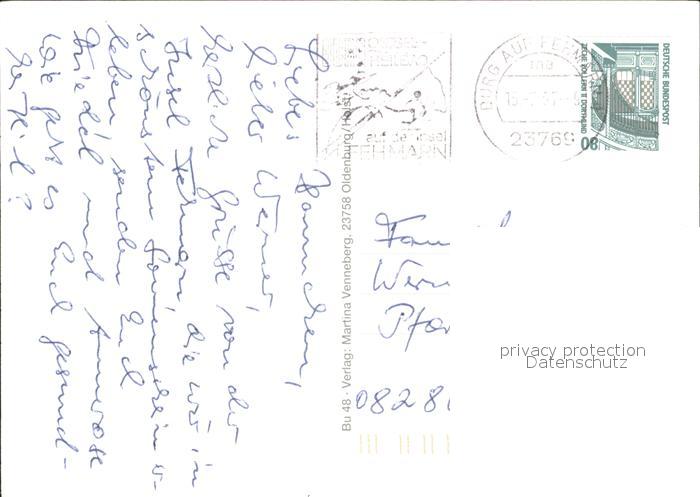 Liebes Hannchen,
lieber Werner,
herzliche Grüsse von der
Insel Fehmarn, die wir in
schönstem Sonnenschein er-
leben senden Euch
Friedel und Annerose
Wie geht es Euch gesund-
heitl.?
Bu 48 · Verlag: Martina Venneberg, 23758 Oldenburg/Holst.
OSTSEE-
HEILBAD
auf der Insel
FEHMARN
BURG AUF FEHMARN
23769
DEUTSCHE BUNDESPOST
ZECHE ZOLLERN II DORTMUND
80
Fam
Wern
Pfar
08281
privacy protection
Datenschutz